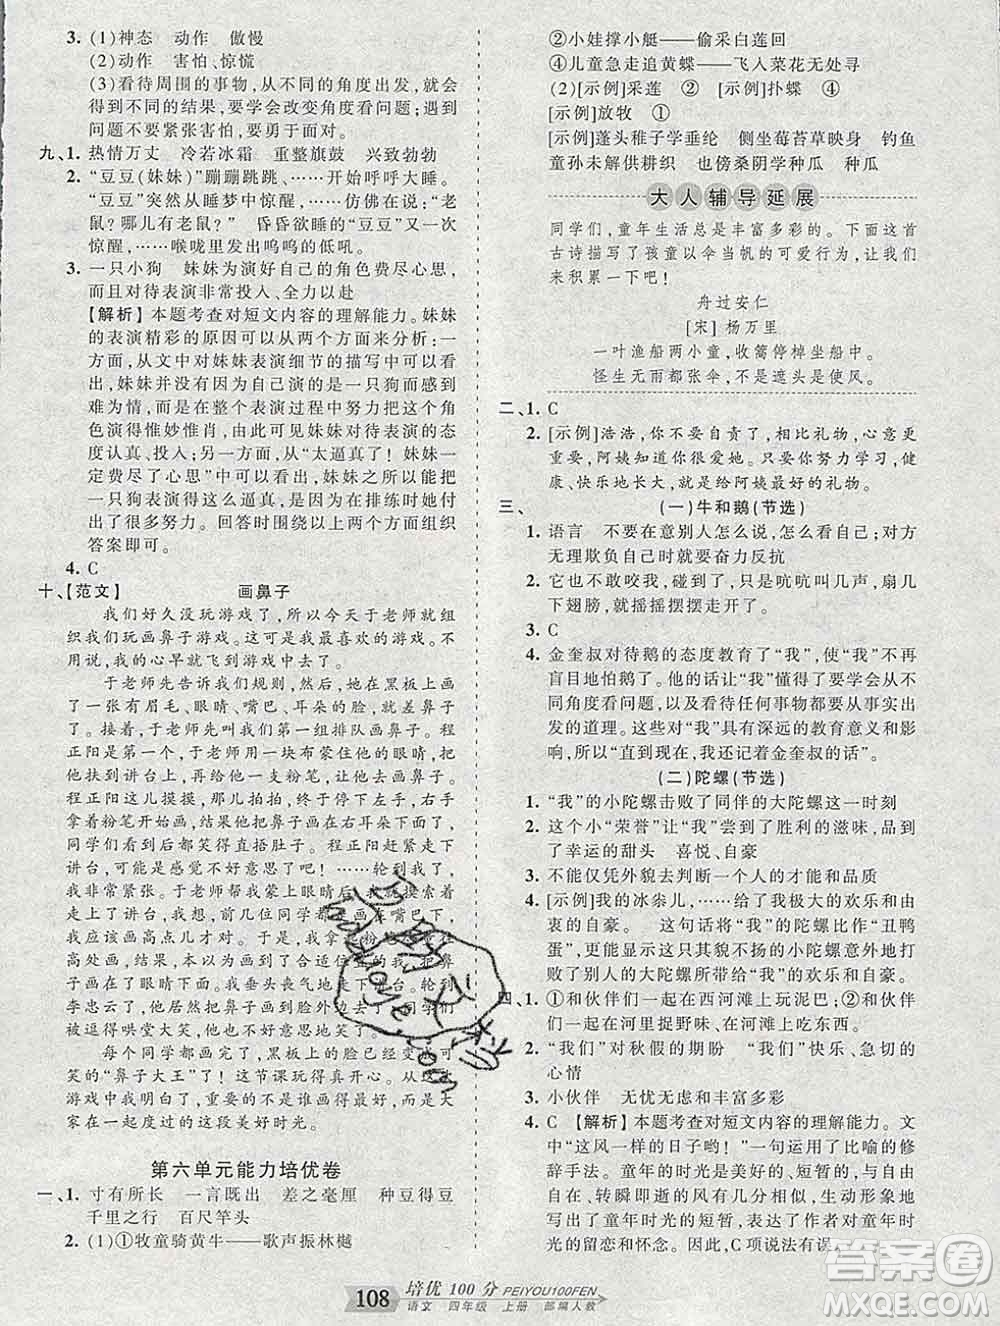 3. (1)神态 动作 傲慢
(2)动作 害怕、惊慌
(3)看待周围的事物，从不同的角度出发，就会
得到不同的结果，要学会改变角度看问题；遇到
问题不要紧张害怕，要勇敢面对
九、1. 热情万丈 冷若冰霜 重整旗鼓 兴致勃勃
2. “豆豆(妹妹)”蹦蹦跳跳、……开始呼呼大睡。
“豆豆”突然从睡梦中惊醒，仿佛在说：“老
鼠？哪儿有老鼠？” 昏昏欲睡的“豆豆”又一次
惊醒，……喉咙里发出呜呜的低吼。
3. 一只小狗 妹妹为演好自己的角色费尽心思，
而且对待表演非常投入、全力以赴
【解析】本题考查对短文内容的理解能力。妹妹
的表演精彩的原因可以从两方面来分析：一
方面，从文中对妹妹表演细节的描写中可以
看出，妹妹并没有因为自己演的是一只狗而感到
难为情，而是在表演过程中努力把自己的角色
演得惟妙惟肖，由此可以看出妹妹对待表演的
认真、投入；另一方面，从“太逼真了！妹妹一
定费尽了心思”可以看出，妹妹之所以能把一
只狗表演得这么逼真，是因为在排练时她付出
了很多努力。回答时围绕以上两个方面组织
答案即可。
4. C
十、【范文】 画鼻子
我们好久没玩游戏了，所以今天于老师就组
织我们玩画鼻子游戏。这是我最喜欢的游戏。不
用说，我的心早就飞到游戏中去了。
于老师先告诉我们规则，然后在黑板上画了
一个有眉毛、眼睛、嘴巴、耳朵的脸，就差鼻子
了。接着，于老师先叫我们第一组排队画鼻子。程
正阳第一个画，于老师用一块布蒙住他的眼睛，
把他扶到讲台上，并给他一支粉笔，叫他去画鼻
子。程正阳这儿摸摸，那儿摸摸，就画起来了。
同学们看到后都笑得直揉肚子。程正阳画完下了
讲台，同学们就一个接一个地画……轮到我了，
我非常紧张。于老师蒙住我的眼睛后，我就慢慢
走上了讲台，突然想起前面的同学画在嘴巴下，
我应该画高点儿才对。于是，我拿起粉笔
高处画去。我画完后，解开布一看，
眼睛上面。唉，位置太高了！我垂头丧气地走下
讲台。
李忠云了，他没有画鼻子，而是在
们被逗得哄堂大笑，于老师也忍不住笑了。
每个同学都画完了，黑板上的脸已经变成大大
的“鼻子大王”了！这节课玩得真开心。从这个
游戏中我明白了，要遵守游戏规则，这样玩才有
意思。我希望以后能拥有更多的美好时光。
第六单元能力培优卷
一、1. 寸有所长 一言既出 差之毫厘 种豆得豆
千里之行 百尺竿头
2. (1)①牧童骑黄牛——歌声振林樾
②小娃撑小艇——偷采白莲回
④儿童急走追黄蝶——飞入菜花无处寻
(2)[示例]采莲 ② [示例]扑蝶 ④
[示例]放牧 ①
[示例]蓬头稚子学垂纶 侧坐莓苔草映身 钓鱼
童孙未解供耕织 也傍桑阴学种瓜 种瓜
大人辅导延展
同学们，童年生活总是丰富多彩的。下面这首
古诗描写了孩童以伞当帆的可爱行为，让我们一起
来积累一下吧！
舟过安仁
[宋] 杨万里
一叶渔船两小童，收篙停棹坐船中。
怪生无雨都张伞，不是遮头是使风。
二、1. C
2. [示例]浩浩，你不要自责了，相比礼物，心意更
重要，阿姨知道你很爱她。只要你努力学习，健
康、快乐地长大，就是给阿姨最好的礼物。
三、 (一)牛和鹅(节选)
1. 语言 不要在意别人怎么说，怎么看自己；对方
无理欺负自己时就要奋力反抗
2. 它也不敢咬我，碰到了，只是吭吭叫几声，扇几
下翅膀，就摇摇摆摆走开了。
3. C
4. 金奎叔对待鹅的态度教育了“我”，使“我”不再
盲目地怕鹅了。他的话让“我”懂得了要从不同
角度看问题，以及看待任何事物都要从事实出
发的道理。这些对“我”具有深远的教育意义和
影响，所以“直到现在，我还记着金奎叔的话”。
(二)陀螺(节选)
1. “我”的小陀螺击败了同伴的大陀螺这一时刻
2. 这个小“荣誉”让“我”尝到了胜利的滋味，品到
了幸运的甜头 喜悦、自豪
3. 不能仅凭外貌去判断一个人的才能和品质
4. [示例]我的冰尜儿，……给了我极大的欢乐和由
衷的自豪。 这句话写出了其貌不扬的小陀螺比作“丑鸭
蛋”，形象地
败了大陀螺所带给“我”的欢乐和自豪。
四、1. ①和伙伴们一起在西河滩上玩泥巴；②和伙伴
们一起在河里捉野味、在河滩上吃东西。
2. “我们”对秋假的期盼 “我们”快乐、急切的
心情
3. 小伙伴 无忧无虑和丰富多彩
4. C 【解析】本题考查对短文内容的理解能力。文
中“这风一样的日子哟！”一句运用了比喻的修
辞手法。童年的时光是美好的、短暂的，与风的
快速、转瞬即逝的特点相吻合，生动形象地写
出了童年时光的短暂，也表达了作者对童年时光
的留恋和怀念。因此，C项说法有误。
108 培优100分 PEIYOU100FEN
语文 四年级 上册 部编人教
作业精灵
答案圈
MXQE.COM